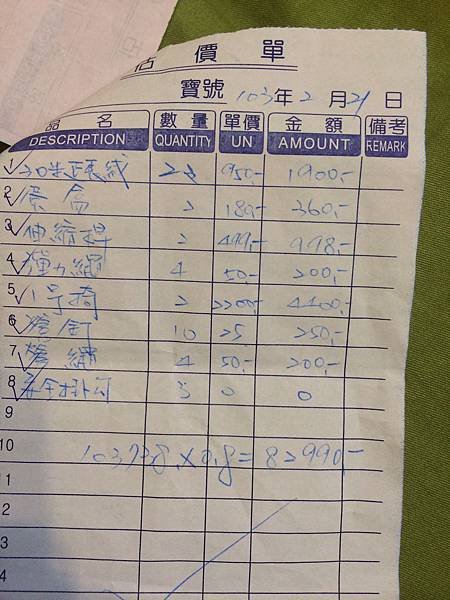 估價單
寶號 103年2月21日
品名 數量 單價 金額 備考
DESCRIPTION QUANTITY UN AMOUNT REMARK
1 950.- 1900.-
2 2 180.- 360.-
3 伸縮桿 2 499.- 998.-
4 彈力繩 4 50.- 200.-
5 2 2200.- 4400.-
6 營釘 10 25 250.-
7 營繩 4 50.- 200.-
8 安全掛勾 3 0 0
9
10 103738.×0.8=82990.-
11
2
3
4